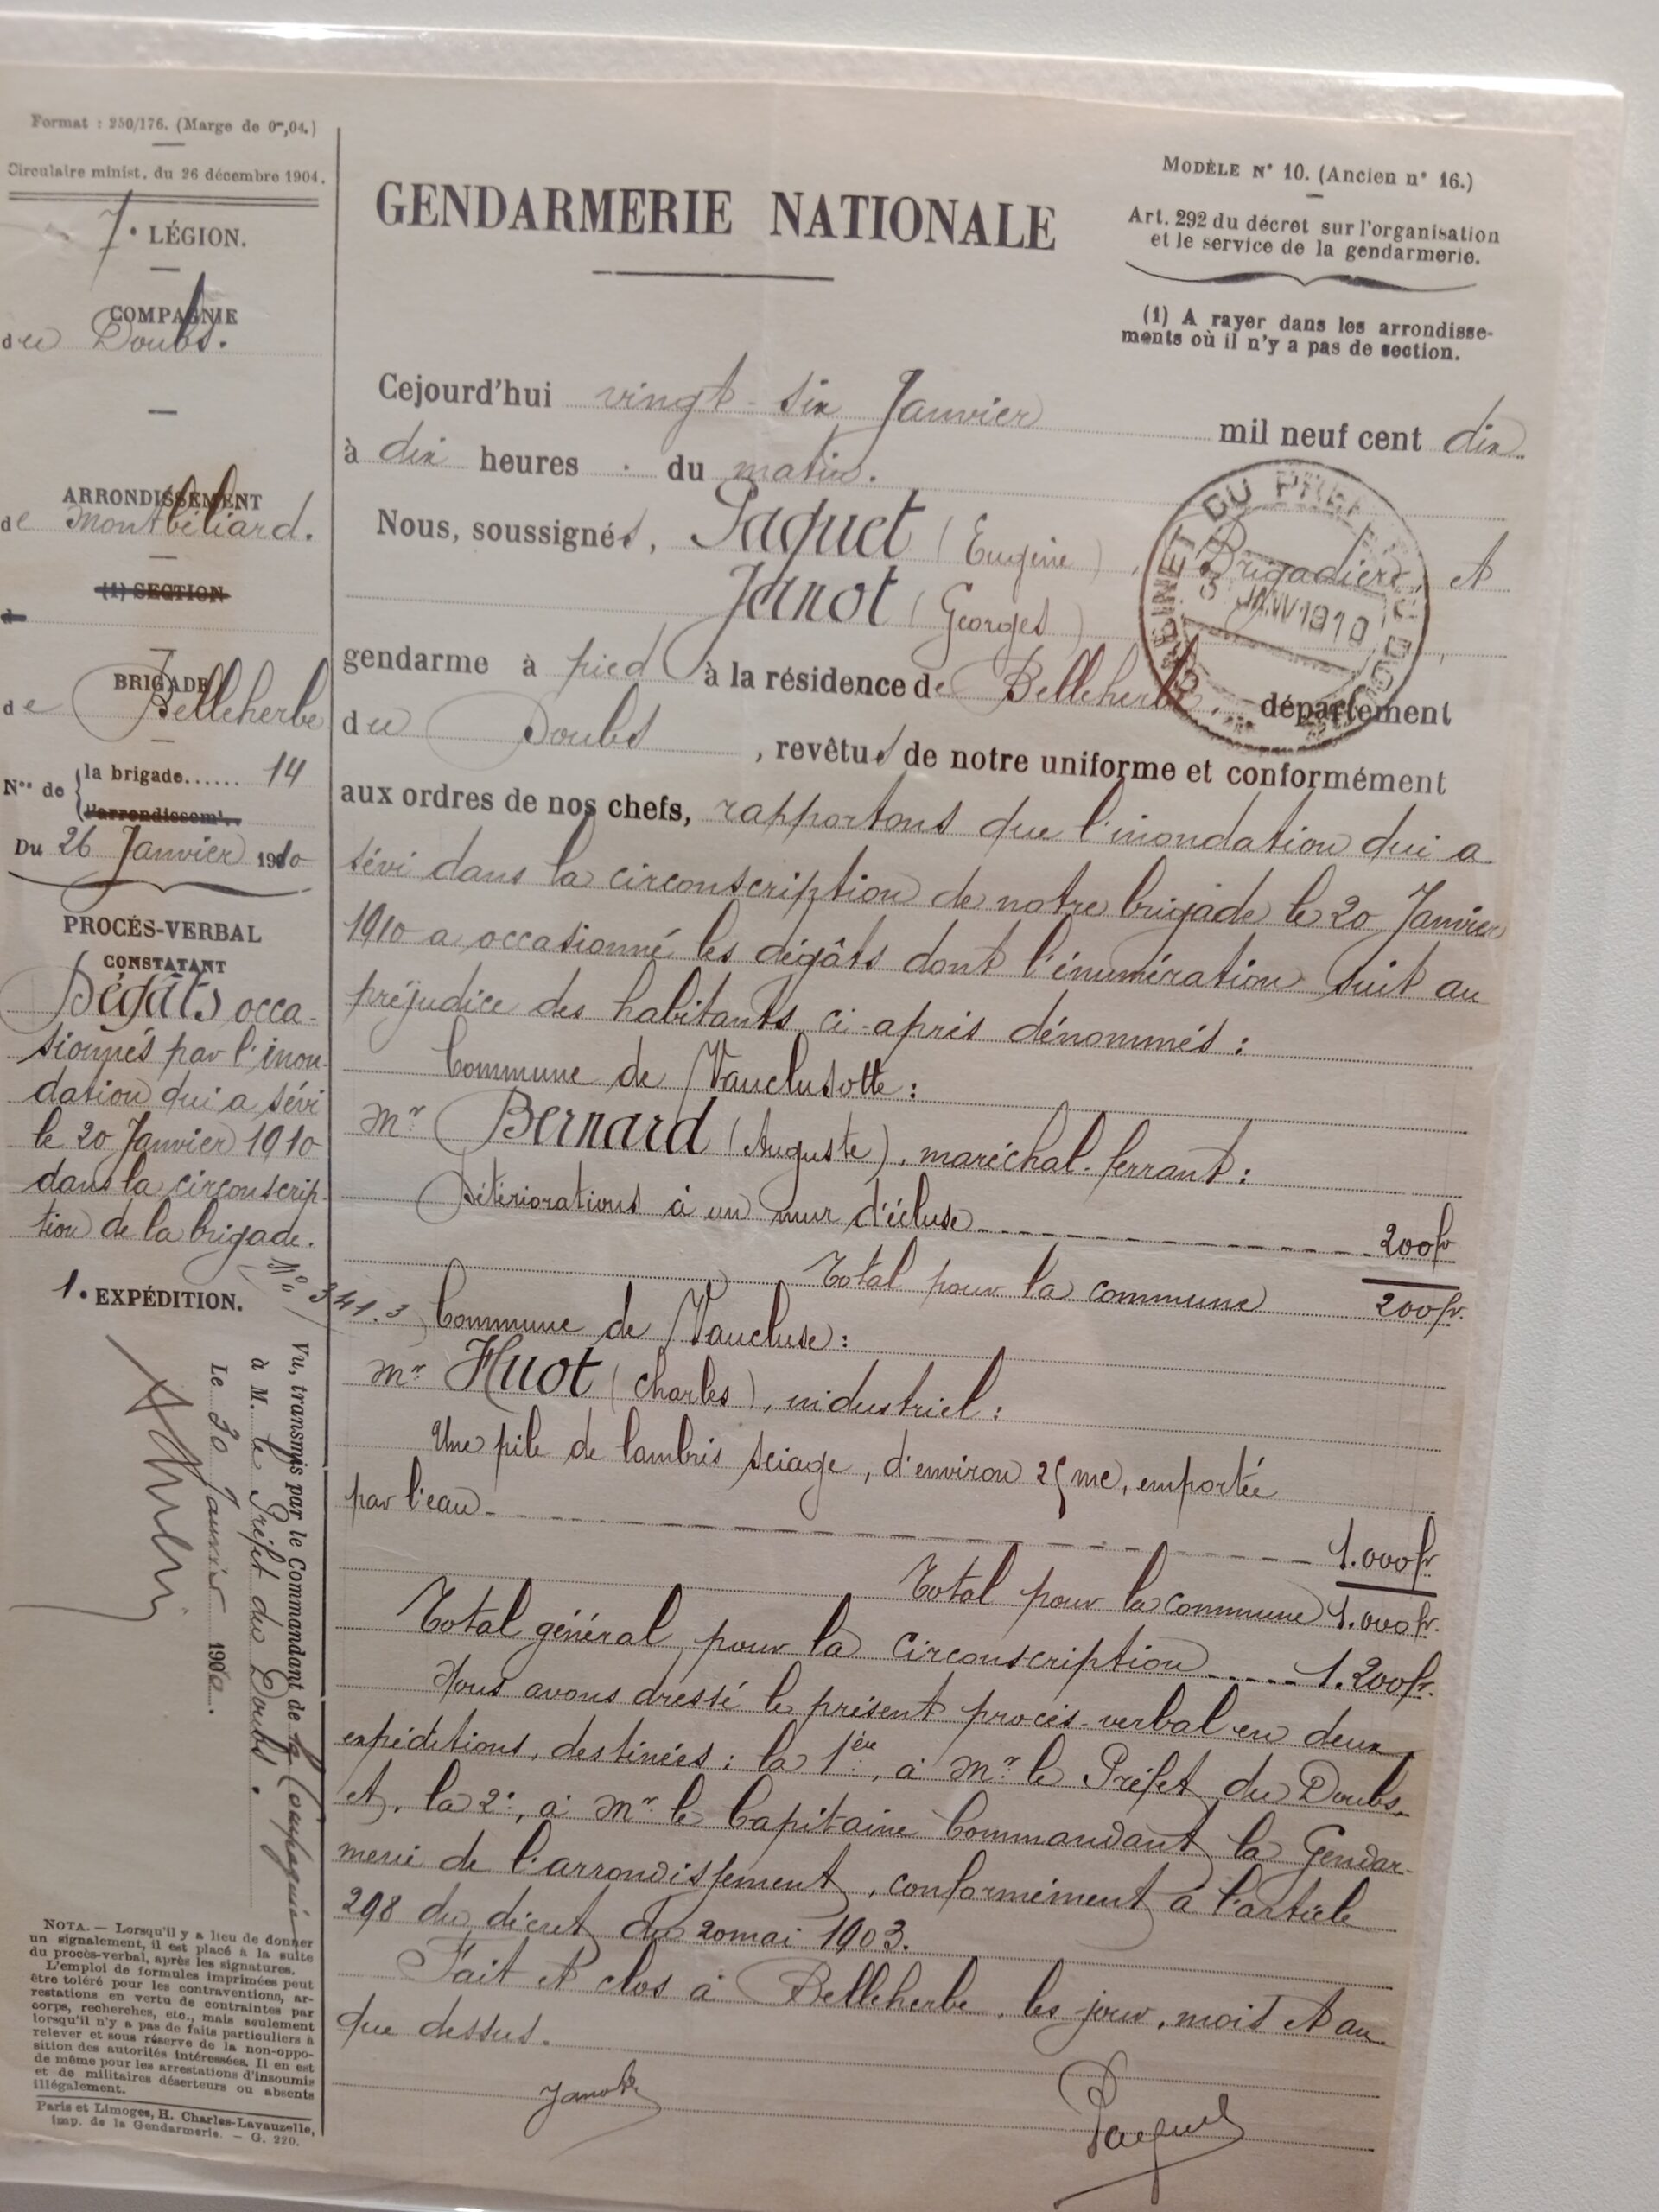 Format : 250/176. (Marge de 0m,04.)
Circulaire minist. du 26 décembre 1904.
7e LÉGION.
COMPAGNIE
du Doubs.
ARRONDISSEMENT
de Montbéliard.
(1) SECTION
d
BRIGADE
de Belleherbe
Nos de
la brigade...... 14
l'arrondissemt..
Du 26 Janvier 1910
PROCÉS-VERBAL
CONSTATANT
Dégâts occa-
sionnés par l'inon-
dation qui a sévi
le 20 Janvier 1910
dans la circonscrip-
tion de la brigade.
1e EXPÉDITION.
Vu, transmis par le Commandant de la Compagnie
à M. le Préfet du Doubs.
Le 30 Janvier 1910.
NOTA. — Lorsqu'il y a lieu de donner
un signalement, il est placé à la suite
du procès-verbal, après les signatures.
L'emploi de formules imprimées peut
être toléré pour les contraventions, ar-
restations en vertu de contraintes par
corps, recherches, etc., mais seulement
lorsqu'il n'y a pas de faits particuliers à
relever et sous réserve de la non-oppo-
sition des autorités intéressées. Il en est
de même pour les arrestations d'insoumis
et de militaires déserteurs ou absents
illégalement.
Paris et Limoges, H. Charles-Lavauzelle,
imp. de la Gendarmerie. — G. 220.
GENDARMERIE NATIONALE
MODÈLE N° 10. (Ancien n° 16.)
Art. 292 du décret sur l'organisation
et le service de la gendarmerie.
(1) A rayer dans les arrondisse-
ments où il n'y a pas de section.
Cejourd'hui vingt-six Janvier mil neuf cent dix
à dix heures du matin.
Nous, soussignés, Paquet (Eugène), Brigadier, et
Janot (Georges)
CABINET DU PRÉFET DU DOUBS
JANV 1910
gendarme à pied à la résidence de Belleherbe, département
du Doubs, revêtus de notre uniforme et conformément
aux ordres de nos chefs, rapportons que l'inondation qui a
sévi dans la circonscription de notre brigade le 20 Janvier
1910 a occasionné les dégâts dont l'énumération suit au
préjudice des habitants ci-après dénommés :
Commune de Vauclusotte :
Mr Bernard (Auguste), maréchal-ferrant :
Détériorations à un mur d'écluse 200fr
Total pour la commune 200fr.
No 341.3
Commune de Vaucluse :
Mr Huot (Charles), industriel :
Une pile de lambris sciage, d'environ 25 mc, emportée
par l'eau 1.000fr
Total pour la commune 1.000fr.
Total général pour la circonscription .... 1.200fr.
Nous avons dressé le présent procès-verbal en deux
expéditions, destinées : la 1ère, à Mr le Préfet du Doubs
et, la 2e, à Mr le Capitaine Commandant la Gendar-
merie de l'arrondissement, conformément à l'article
298 du décret du 20 mai 1903.
Fait et clos à Belleherbe, les jour, mois et an
que dessus.
Janot
Paquet